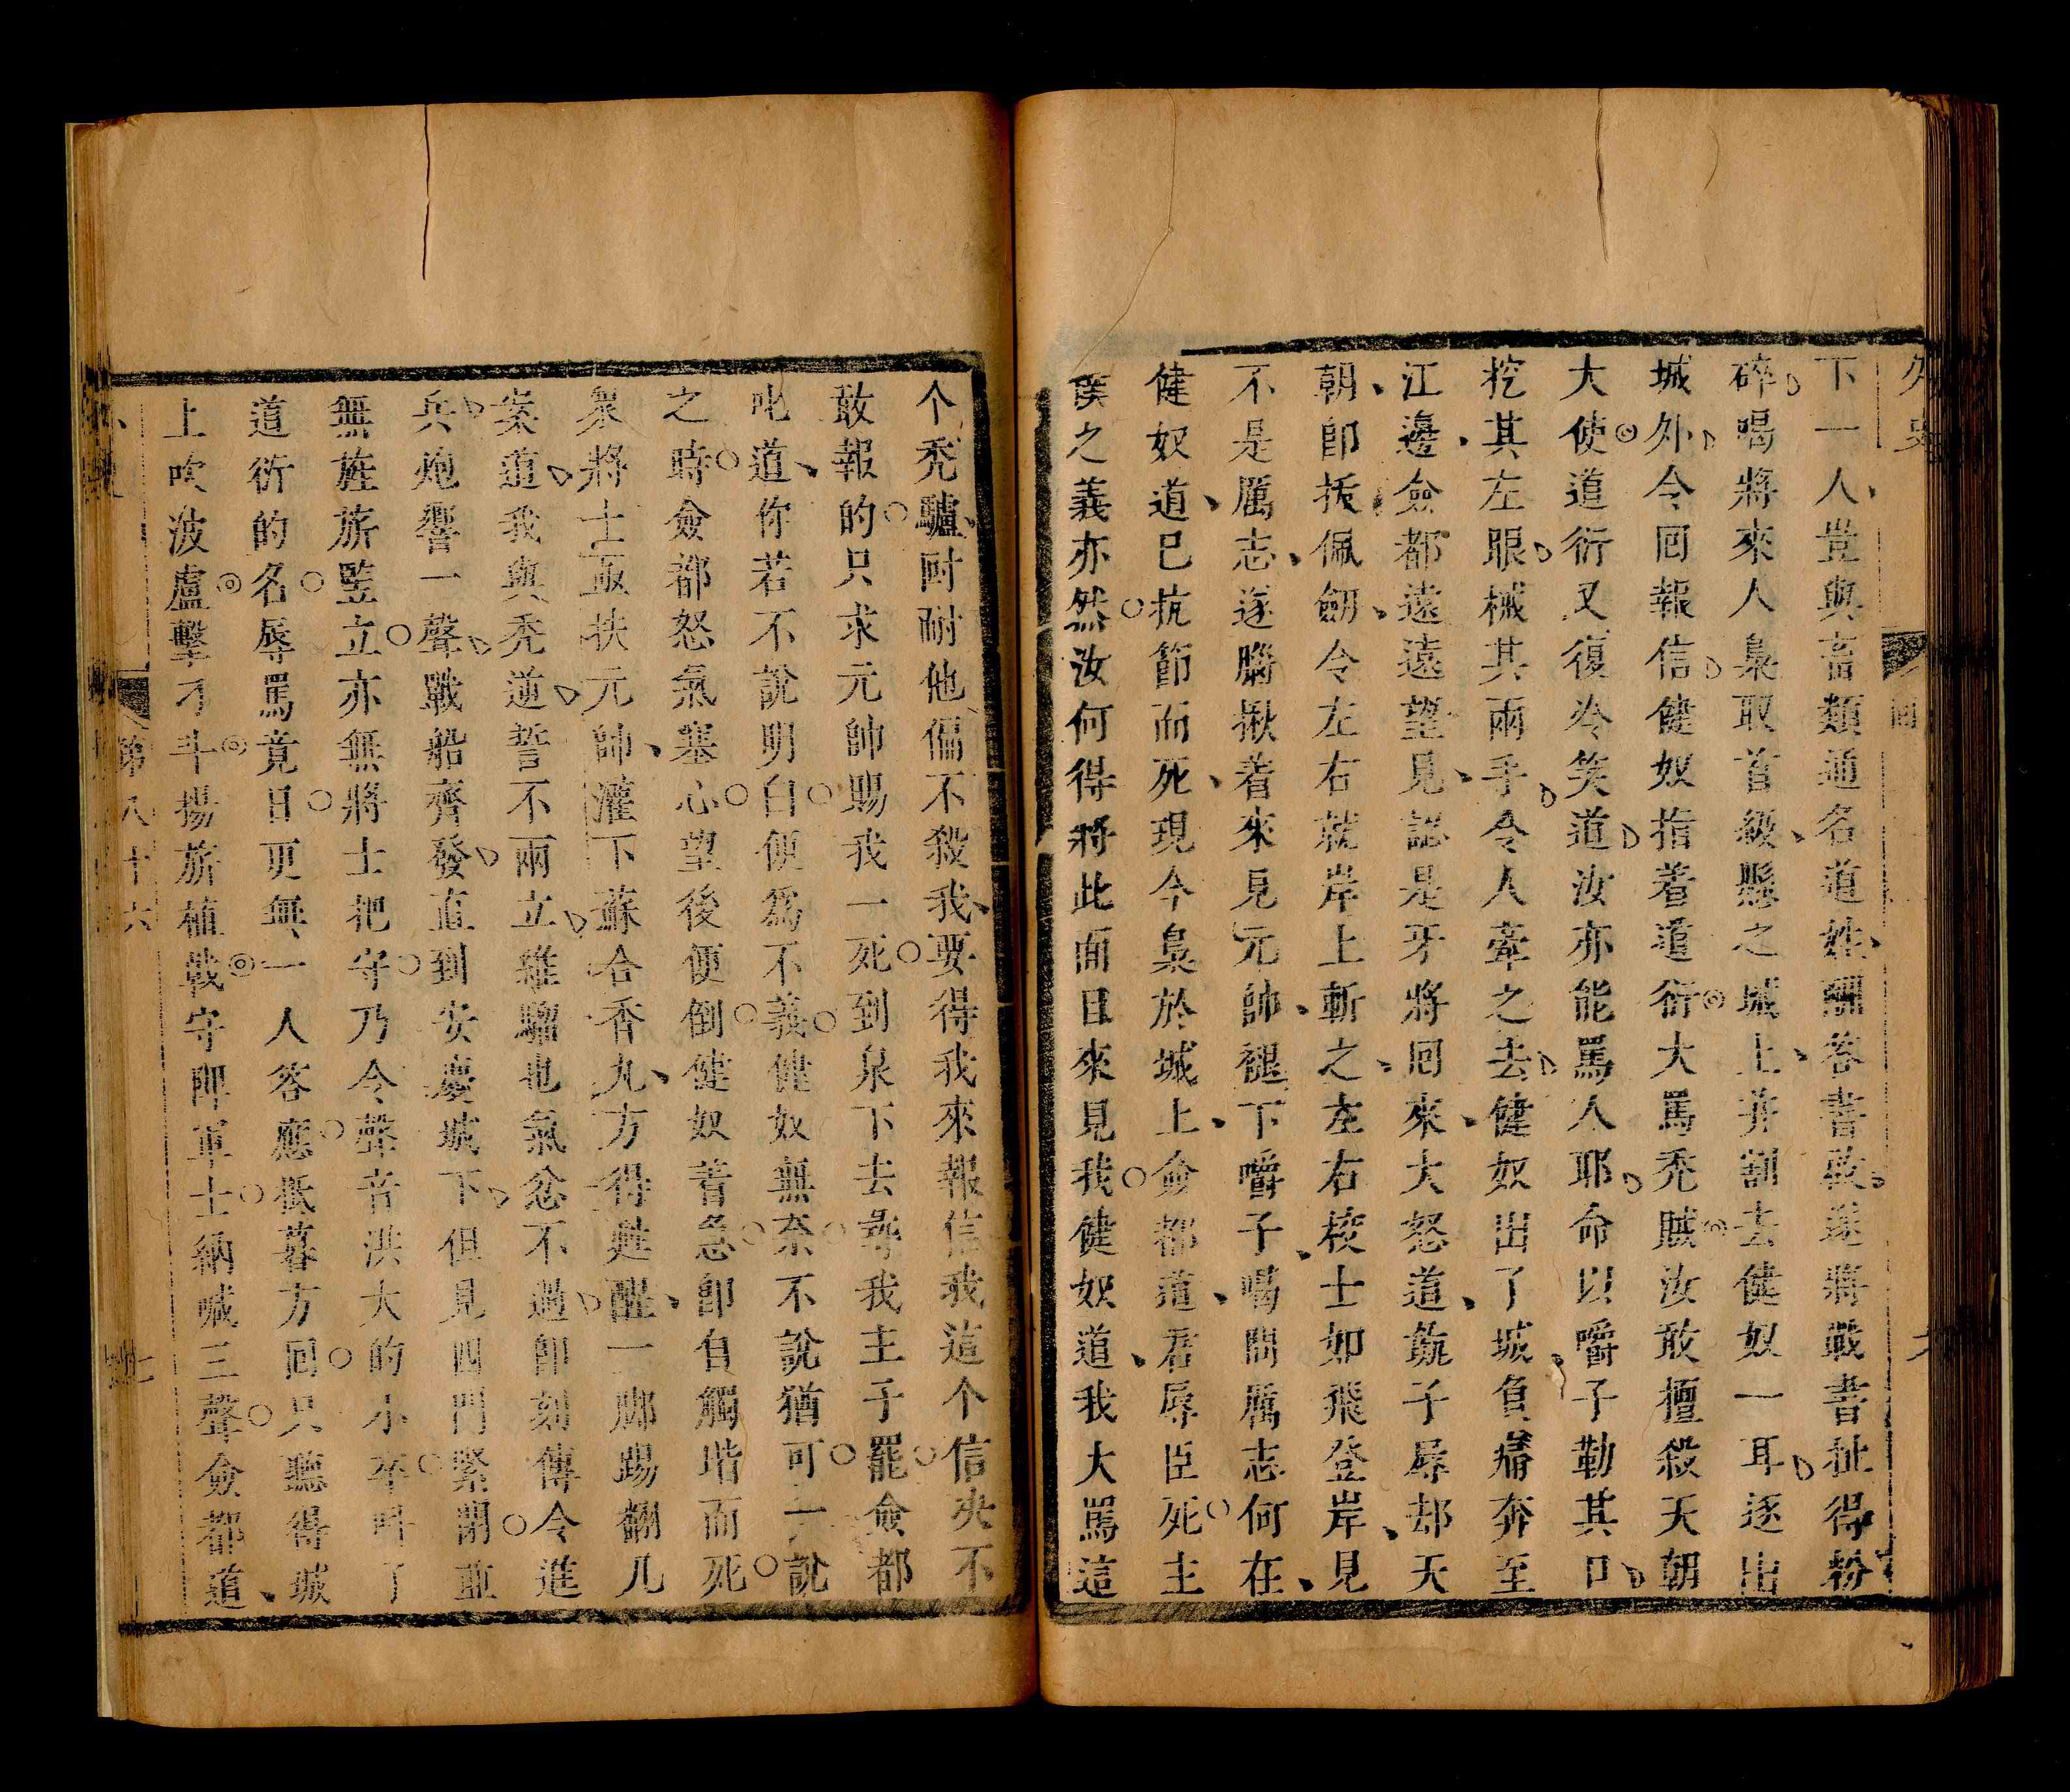 外史
回
下一人豈與畜類通名道姓酬答書啟遂將戰書扯得粉
碎喝將來人梟取首級懸之城上并割去健奴一耳逐出
城外令回報信健奴指着道衍大罵禿賊汝敢擅殺天朝
大使道衍又復冷笑道汝亦能罵人耶命以嚼子勒其口
挖其左眼械其兩手令人牽之去健奴出了城負痛奔至
江邊僉都遠遠望見認是牙將回來大怒道瓻子辱却天
朝卽拔佩劒令左右就岸上斬之左右校士如飛登岸見
不是厲志遂腦揪着來見元帥褪下嚼子喝問厲志何在
健奴道已抗節而死現今梟於城上僉都道君辱臣死主
僕之義亦然汝何得將此面目來見我健奴道我大罵這
个禿驢耐耐他偏不殺我要得我來報信我這个信央不
敢報的只求元帥賜我一死到泉下去尋我主子罷僉都
叱道你若不說明白便爲不義健奴無奈不說猶可一說
之時僉都怒氣塞心望後便倒健奴着急卽自觸堦而死
衆將士亟扶元帥灌下蘇合香丸方得甦醒一脚踢翻几
案道我與禿逆誓不兩立雖騮也氣忿不過卽刻傳令進
兵炮響一聲戰船齊發直到安慶城下但見四門緊閉並
無旌旂竪立亦無將士把守乃令聲音洪大的小卒呌了
道衍的名辱罵竟日更無一人答應抵暮方回只聽得城
上吹波盧擊刁斗揚旂植戟守陴軍士納喊三聲僉都道
第八十六